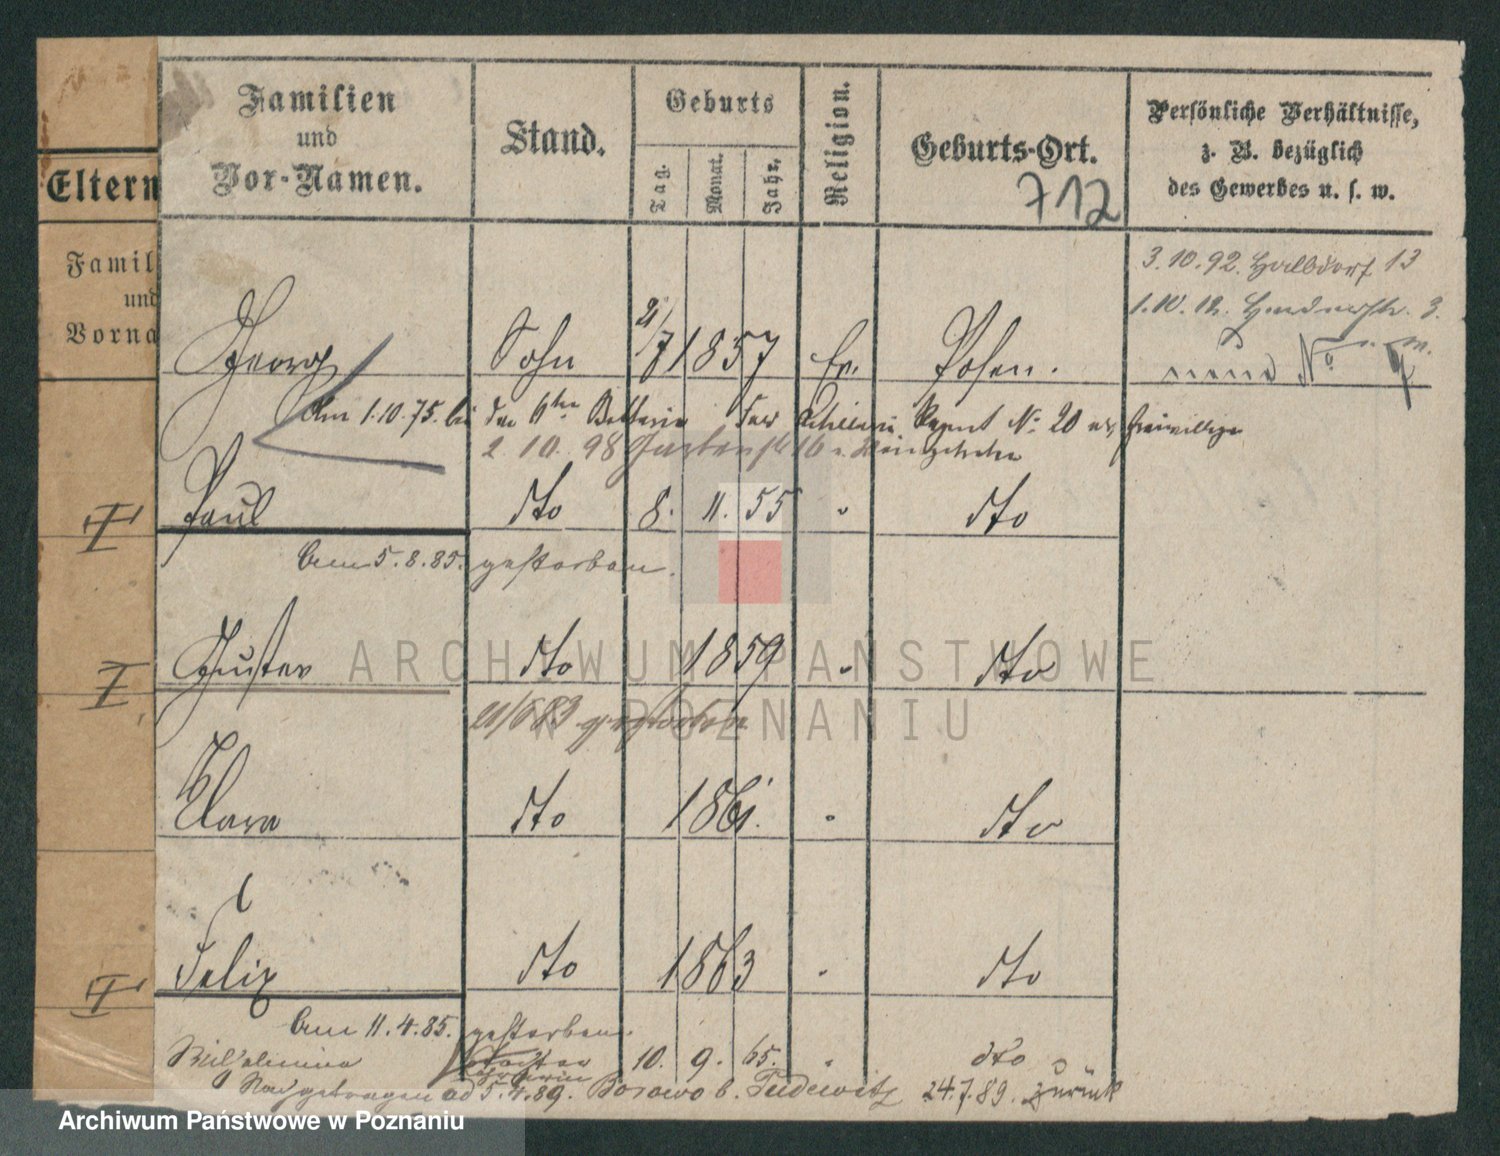 Eltern
Famil
und
Vorna
Familien
und
Vor-Namen.
Stand.
Geburts
Tag.
Monat.
Jahr.
Religion.
Geburts-Ort.
712
Persönliche Verhältnisse,
z. B. bezüglich
des Gewerbes u. s. w.
3.10.92. Halbdorf 13
1.10.12. 3.
No
Georg Sohn 21/7 1857 Ev. Posen.
Am 1.10.75. bei der 6ten Batterie Artillerie Regmt No 20 als Freiwilliger
2.10.98 Gartenstr 16
Paul dto 8. 11. 55 " dto
Am 5.8.85. gestorben.
Gustav dto 1859 " dto
gestorben
Clara dto 1861. " dto
Felix dto 1863 " dto
Am 11.4.85. gestorben.
Wilhelmine Tochter 10. 9. 65. " dto
Nachgetragen ad 5.4.89. Borowo b. 24.7.89. zurück
ARCHIWUM PAŃSTWOWE
W POZNANIU
Archiwum Państwowe w Poznaniu